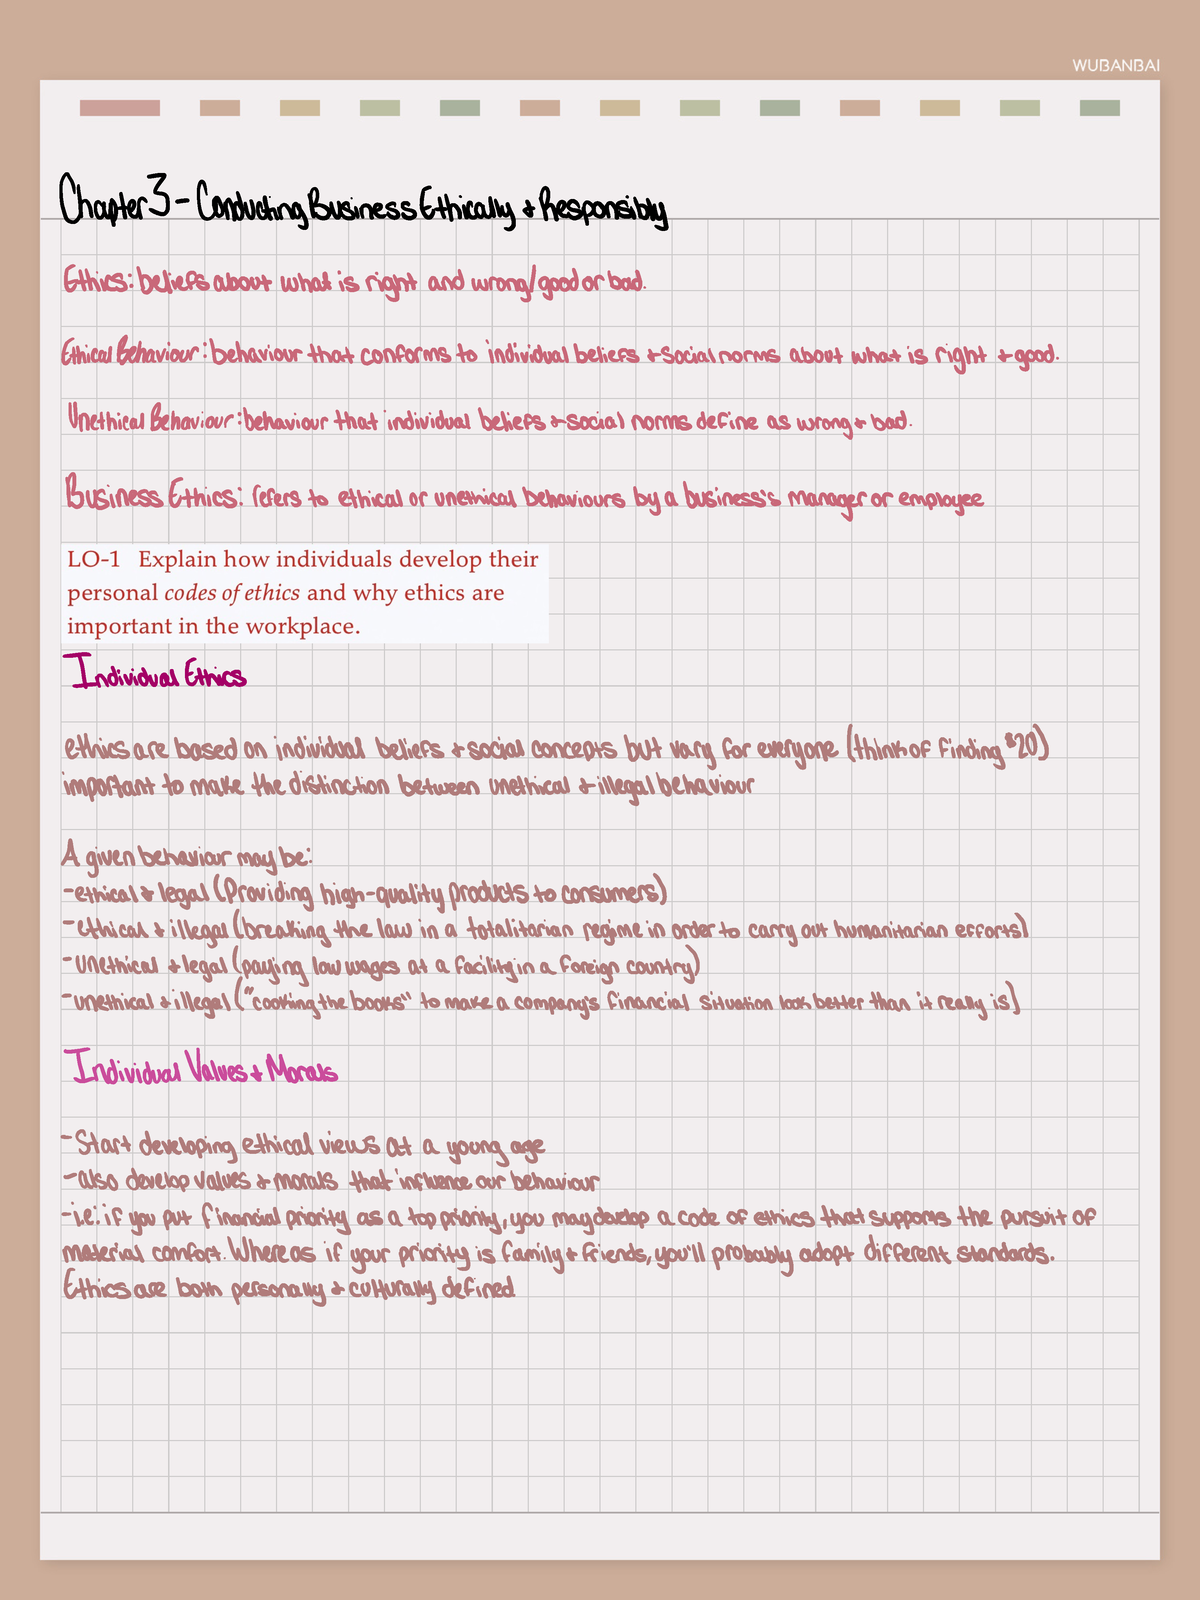 WUBANBAI
Chapter 3 - Conducting Business Ethically & Responsibly
Ethics: beliefs about what is right and wrong/good or bad.
Ethical Behaviour: behaviour that conforms to individual beliefs & social norms about what is right & good.
Unethical Behaviour: behaviour that individual beliefs & social norms define as wrong & bad.
Business Ethics: refers to ethical or unethical behaviours by a business's manager or employee
LO-1 Explain how individuals develop their
personal codes of ethics and why ethics are
important in the workplace.
Individual Ethics
ethics are based on individual beliefs & social concepts but vary for everyone (think of finding $20)
important to make the distinction between unethical & illegal behaviour
A given behaviour may be:
-ethical & legal (Providing high-quality products to consumers)
-ethical & illegal (breaking the law in a totalitarian regime in order to carry out humanitarian efforts)
-unethical & legal (paying low wages at a facility in a foreign country)
-unethical & illegal ("cooking the books" to make a company's financial situation look better than it really is)
Individual Values & Morals
-Start developing ethical views at a young age
-also develop values & morals that influence our behaviour
-i.e: if you put financial priority as a top priority, you may develop a code of ethics that supports the pursuit of
material comfort. Whereas if your priority is family & friends, you'll probably adopt different standards.
Ethics are both personally & culturally defined